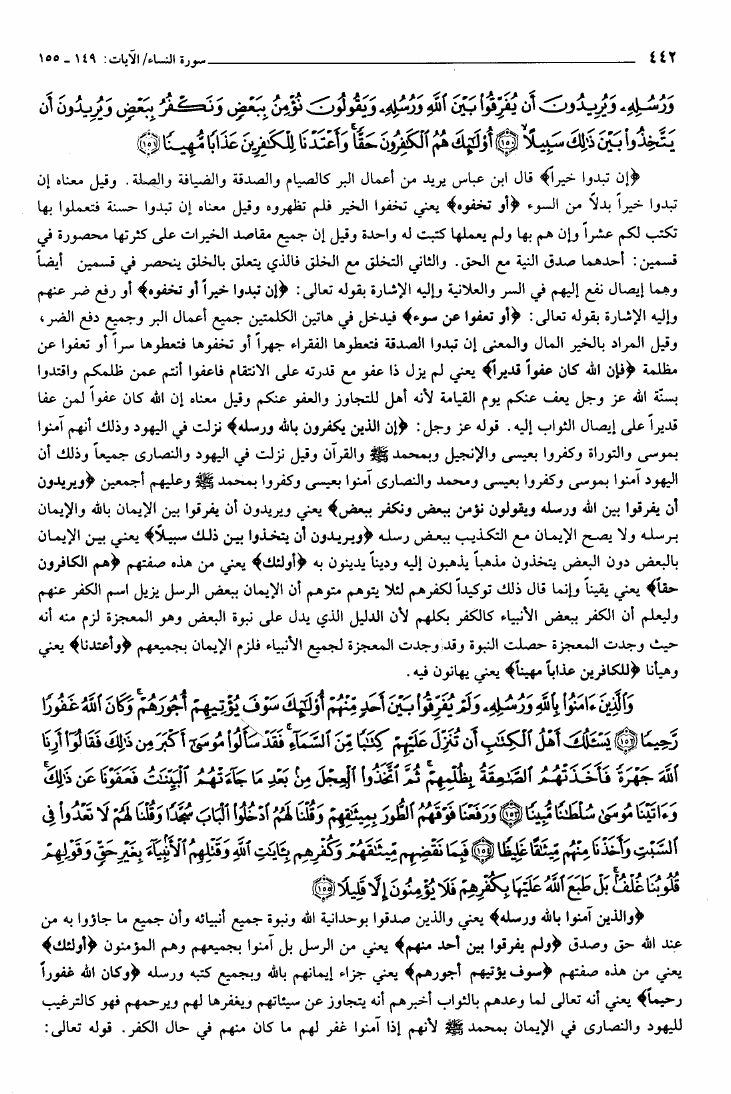 ٤٤٢ سورة النساء/ الآيات: ١٤٩ ـ ١٥٥
وَرُسُلِهِۦ وَيُرِيدُونَ أَن يُفَرِّقُوا۟ بَيْنَ ٱللَّهِ وَرُسُلِهِۦ وَيَقُولُونَ نُؤْمِنُ بِبَعْضٍ وَنَكْفُرُ بِبَعْضٍ وَيُرِيدُونَ أَن
يَتَّخِذُوا۟ بَيْنَ ذَٰلِكَ سَبِيلًا ﴿١٥٠﴾ أُو۟لَٰٓئِكَ هُمُ ٱلْكَٰفِرُونَ حَقًّا ۚ وَأَعْتَدْنَا لِلْكَٰفِرِينَ عَذَابًا مُّهِينًا ﴿١٥١﴾
﴿إن تبدوا خيراً﴾ قال ابن عباس يريد من أعمال البر كالصيام والصدقة والضيافة والصلة. وقيل معناه إن
تبدوا خيراً بدلاً من السوء ﴿أو تخفوه﴾ يعني تخفوا الخير فلم تظهروه وقيل معناه إن تبدوا حسنة فتعملوا بها
تكتب لكم عشراً وإن هم بها ولم يعملها كتبت له واحدة وقيل إن جميع مقاصد الخيرات على كثرتها محصورة في
قسمين: أحدهما صدق النية مع الحق. والثاني التخلق مع الخلق فالذي يتعلق بالخلق ينحصر في قسمين أيضاً
وهما إيصال نفع إليهم في السر والعلانية وإليه الإشارة بقوله تعالى: ﴿إن تبدوا خيراً أو تخفوه﴾ أو رفع ضر عنهم
وإليه الإشارة بقوله تعالى: ﴿أو تعفوا عن سوء﴾ فيدخل في هاتين الكلمتين جميع أعمال البر وجميع دفع الضر،
وقيل المراد بالخير المال والمعنى إن تبدوا الصدقة فتعطوها الفقراء جهراً أو تخفوها فتعطوها سراً أو تعفوا عن
مظلمة ﴿فإن الله كان عفواً قديراً﴾ يعني لم يزل ذا عفو مع قدرته على الانتقام فاعفوا أنتم عمن ظلمكم واقتدوا
بسنّة الله عز وجل يعف عنكم يوم القيامة لأنه أهل للتجاوز والعفو عنكم وقيل معناه إن الله كان عفواً لمن عفا
قديراً على إيصال الثواب إليه. قوله عز وجل: ﴿إن الذين يكفرون بالله ورسله﴾ نزلت في اليهود وذلك أنهم آمنوا
بموسى والتوراة وكفروا بعيسى والإنجيل وبمحمد ﷺ والقرآن وقيل نزلت في اليهود والنصارى جميعاً وذلك أن
اليهود آمنوا بموسى وكفروا بعيسى ومحمد والنصارى آمنوا بعيسى وكفروا بمحمد ﷺ وعليهم أجمعين ﴿ويريدون
أن يفرقوا بين الله ورسله ويقولون نؤمن ببعض ونكفر ببعض﴾ يعني ويريدون أن يفرقوا بين الإيمان بالله والإيمان
برسله ولا يصح الإيمان مع التكذيب ببعض رسله ﴿ويريدون أن يتخذوا بين ذلك سبيلاً﴾ يعني بين الإيمان
بالبعض دون البعض يتخذون مذهباً يذهبون إليه وديناً يدينون به ﴿أولئك﴾ يعني من هذه صفتهم ﴿هم الكافرون
حقاً﴾ يعني يقيناً وإنما قال ذلك توكيداً لكفرهم لئلا يتوهم متوهم أن الإيمان ببعض الرسل يزيل اسم الكفر عنهم
وليعلم أن الكفر ببعض الأنبياء كالكفر بكلهم لأن الدليل الذي يدل على نبوة البعض وهو المعجزة لزم منه أنه
حيث وجدت المعجزة حصلت النبوة وقد وجدت المعجزة لجميع الأنبياء فلزم الإيمان بجميعهم ﴿وأعتدنا﴾ يعني
وهيأنا ﴿للكافرين عذاباً مهيناً﴾ يعني يهانون فيه.
وَٱلَّذِينَ ءَامَنُوا۟ بِٱللَّهِ وَرُسُلِهِۦ وَلَمْ يُفَرِّقُوا۟ بَيْنَ أَحَدٍ مِّنْهُمْ أُو۟لَٰٓئِكَ سَوْفَ يُؤْتِيهِمْ أُجُورَهُمْ ۗ وَكَانَ ٱللَّهُ غَفُورًا
رَّحِيمًا ﴿١٥٢﴾ يَسْـَٔلُكَ أَهْلُ ٱلْكِتَٰبِ أَن تُنَزِّلَ عَلَيْهِمْ كِتَٰبًا مِّنَ ٱلسَّمَآءِ ۚ فَقَدْ سَأَلُوا۟ مُوسَىٰٓ أَكْبَرَ مِن ذَٰلِكَ فَقَالُوٓا۟ أَرِنَا
ٱللَّهَ جَهْرَةً فَأَخَذَتْهُمُ ٱلصَّٰعِقَةُ بِظُلْمِهِمْ ۚ ثُمَّ ٱتَّخَذُوا۟ ٱلْعِجْلَ مِنۢ بَعْدِ مَا جَآءَتْهُمُ ٱلْبَيِّنَٰتُ فَعَفَوْنَا عَن ذَٰلِكَ ۚ
وَءَاتَيْنَا مُوسَىٰ سُلْطَٰنًا مُّبِينًا ﴿١٥٣﴾ وَرَفَعْنَا فَوْقَهُمُ ٱلطُّورَ بِمِيثَٰقِهِمْ وَقُلْنَا لَهُمُ ٱدْخُلُوا۟ ٱلْبَابَ سُجَّدًا وَقُلْنَا لَهُمْ لَا تَعْدُوا۟ فِى
ٱلسَّبْتِ وَأَخَذْنَا مِنْهُم مِّيثَٰقًا غَلِيظًا ﴿١٥٤﴾ فَبِمَا نَقْضِهِم مِّيثَٰقَهُمْ وَكُفْرِهِم بِـَٔايَٰتِ ٱللَّهِ وَقَتْلِهِمُ ٱلْأَنۢبِيَآءَ بِغَيْرِ حَقٍّ وَقَوْلِهِمْ
قُلُوبُنَا غُلْفٌۢ ۚ بَلْ طَبَعَ ٱللَّهُ عَلَيْهَا بِكُفْرِهِمْ فَلَا يُؤْمِنُونَ إِلَّا قَلِيلًا ﴿١٥٥﴾
﴿والذين آمنوا بالله ورسله﴾ يعني والذين صدقوا بوحدانية الله ونبوة جميع أنبيائه وأن جميع ما جاؤوا به من
عند الله حق وصدق ﴿ولم يفرقوا بين أحد منهم﴾ يعني من الرسل بل آمنوا بجميعهم وهم المؤمنون ﴿أولئك﴾
يعني من هذه صفتهم ﴿سوف يؤتيهم أجورهم﴾ يعني جزاء إيمانهم بالله وبجميع كتبه ورسله ﴿وكان الله غفوراً
رحيماً﴾ يعني أنه تعالى لما وعدهم بالثواب أخبرهم أنه يتجاوز عن سيئاتهم ويغفرها لهم ويرحمهم فهو كالترغيب
لليهود والنصارى في الإيمان بمحمد ﷺ لأنهم إذا آمنوا غفر لهم ما كان منهم في حال الكفر. قوله تعالى: